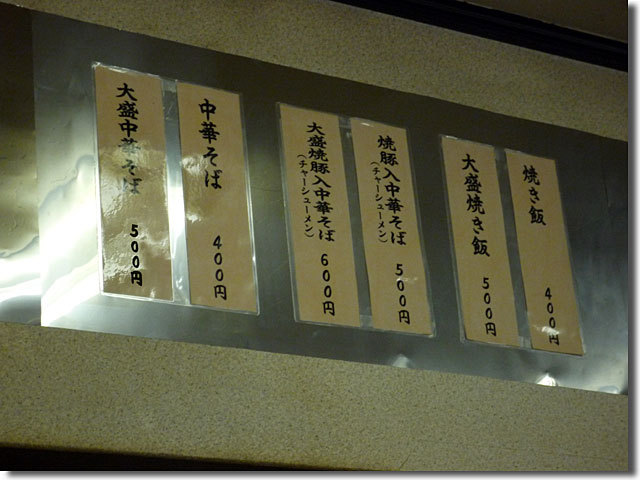 焼き飯 400円
大盛焼き飯 500円
焼豚入中華そば
(チャーシューメン) 500円
大盛焼豚入中華そば
(チャーシューメン) 600円
中華そば 400円
大盛中華そば 500円